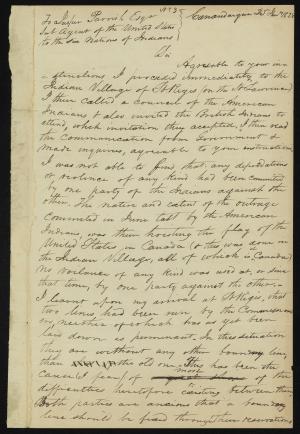 To Jasper Parrish Esqr No 3 Canandaigua
Sub Agent of the United States
to the Six Nations of Indians
Sir
Agreeable to your in-
structions I proceeded immediately to the
Indian Village of St Regis (on the St Lawrence)
I then called a council of the American
Indians & also invited the British Indians to
attend, which invitation they accepted, I then read
the communication from Government &
made inquiries, agreeable to your instructions
I was not able to find that any depredations
or violence of any kind had been committed
by one party of the Indians against the
other. The nature and extent of the outrage
committed in June last by the American
Indians, was then hoisting the flag of the
United States, in Canada (& this was done in
the Indian Village, all of which is in Canada)
No violence of any kind was used at, or since
that time, by one party against the other.
I learnt upon my arrival at St Regis, that
two lines had been run by the Commission
neither of which has as yet been
laid down as permanent. In this situation
they are without any other boundary line,
than the old one. This has been the
cause (I fear) of most of the
difficulties heretofore existing between them
Both parties are anxious that a boundary
line should be fixed through their reservation